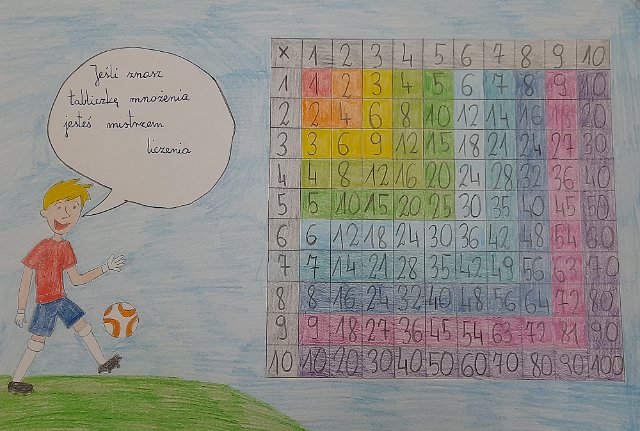 Jeśli znasz
tabliczkę mnożenia
jesteś mistrzem
liczenia
x 1 2 3 4 5 6 7 8 9 10
1 1 2 3 4 5 6 7 8 9 10
2 2 4 6 8 10 12 14 16 18 20
3 3 6 9 12 15 18 21 24 27 30
4 4 8 12 16 20 24 28 32 36 40
5 5 10 15 20 25 30 35 40 45 50
6 6 12 18 24 30 36 42 48 54 60
7 7 14 21 28 35 42 49 56 63 70
8 8 16 24 32 40 48 56 64 72 80
9 9 18 27 36 45 54 63 72 81 90
10 10 20 30 40 50 60 70 80 90 100